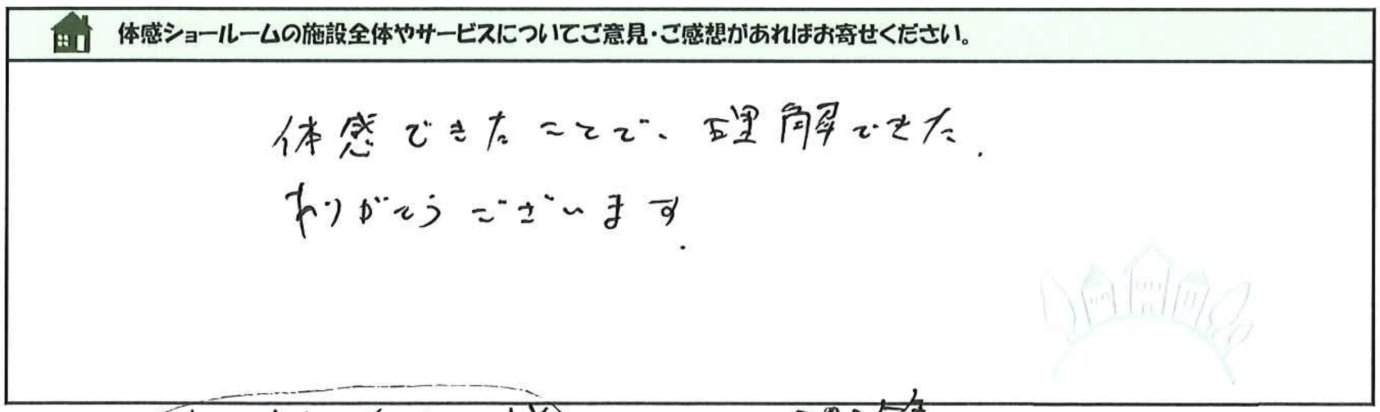 体感ショールームの施設全体やサービスについてご意見・ご感想があればお寄せください。
体感できたことで、理解できた.
ありがとうございます.